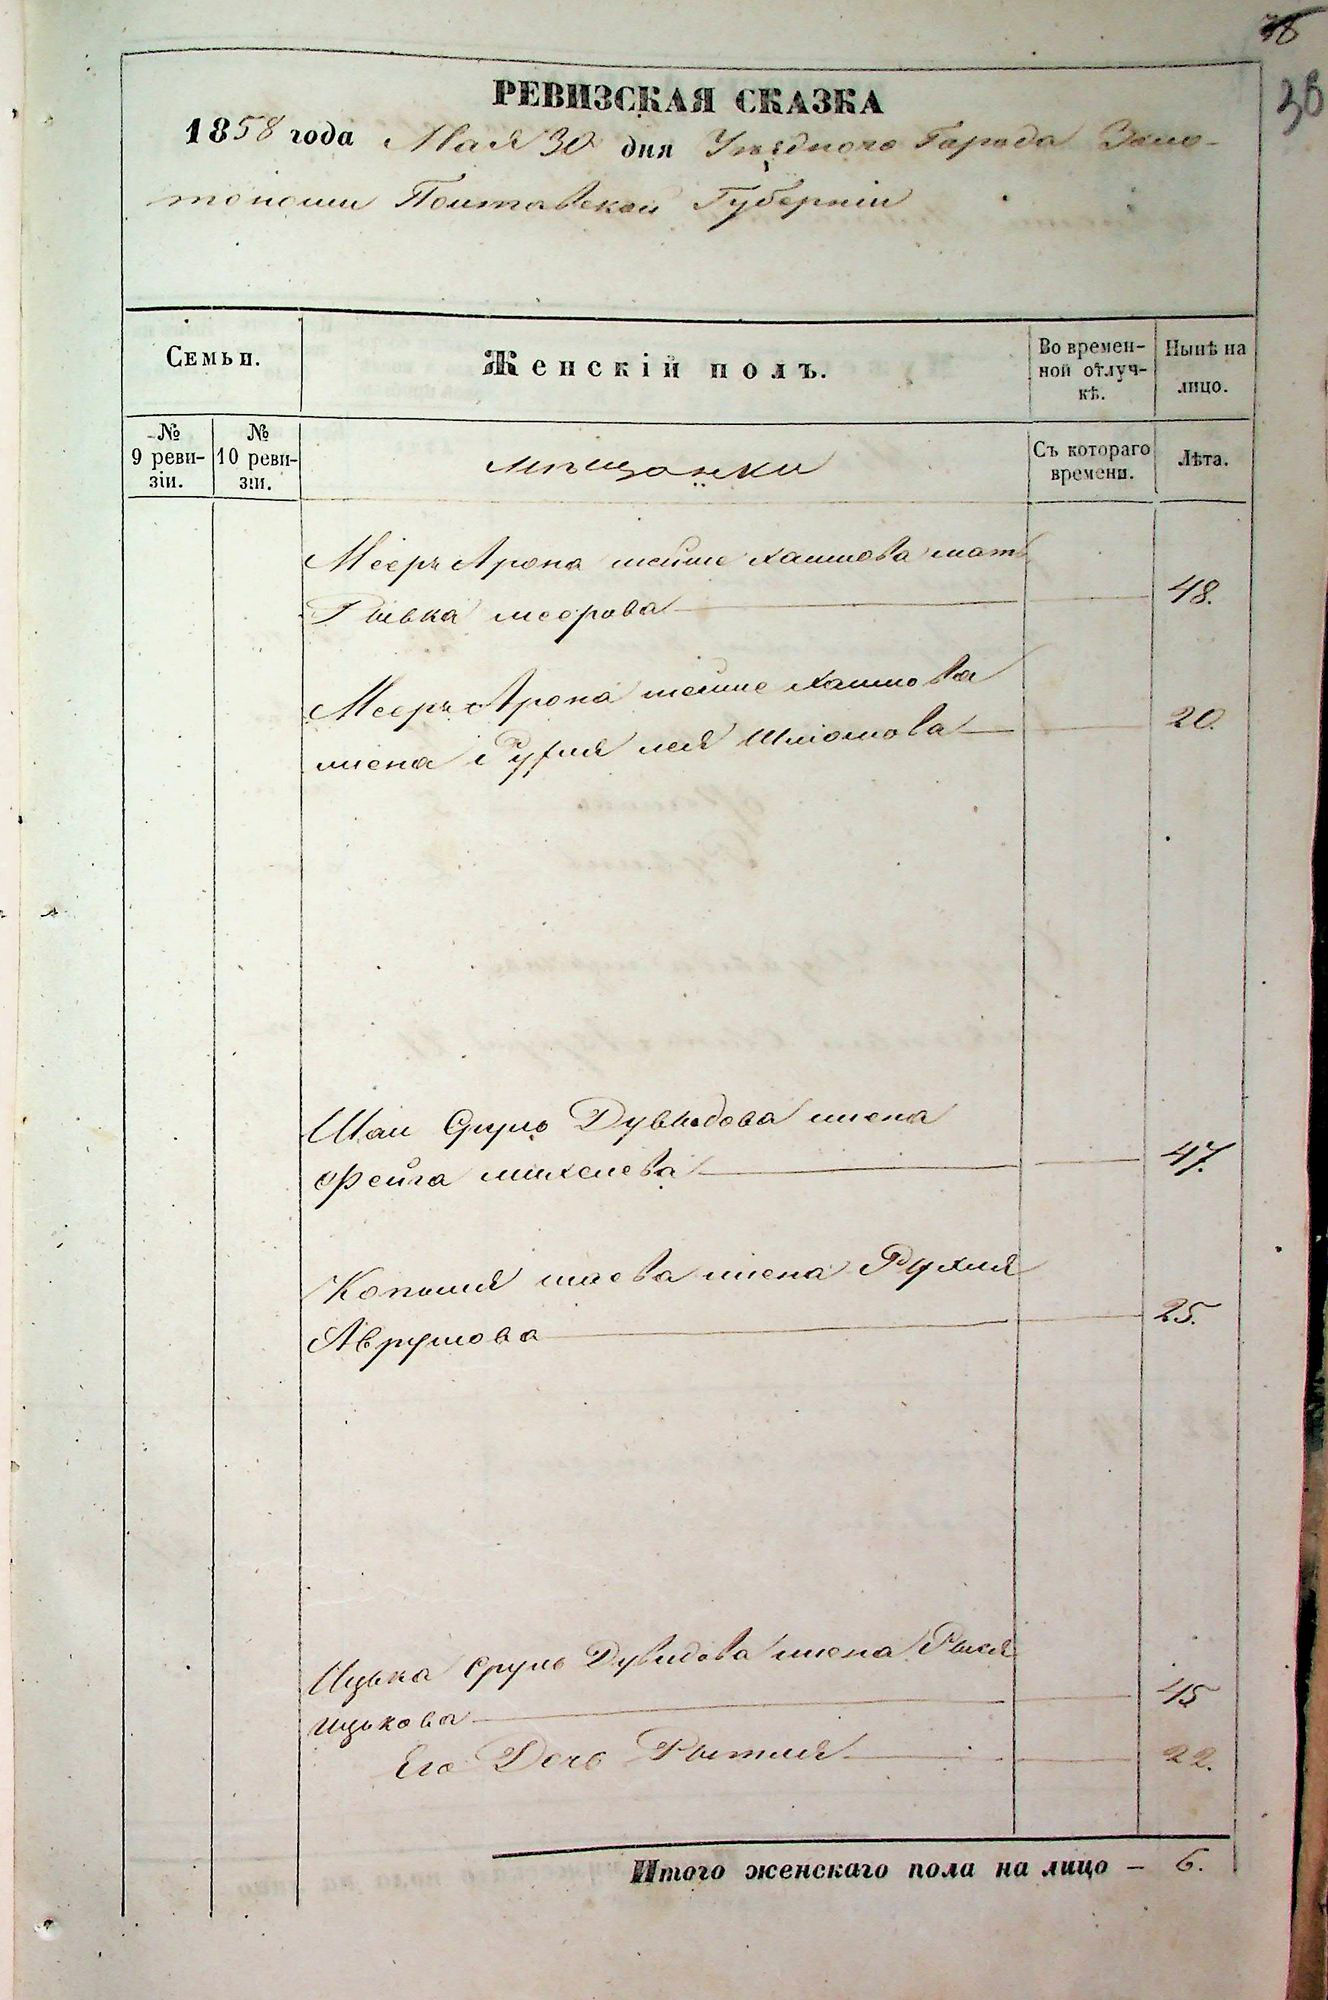 36
РЕВИЗСКАЯ СКАЗКА
1858 года Мая 30 дня Уезднаго Города Золо-
тоноши Полтавской Губерніи
Семьи.
Женскій полъ.
Во времен-
ной отлуч-
кѣ.
Нынѣ на
лицо.
№
9 реви-
зіи.
№
10 реви-
зіи.
мѣщанки
Съ котораго
времени.
Лѣта.
Мееръ Арона хаимова мать
Рывка меерова 48.
Мееръ Арона хаимова
жена Рухля лея Шліомова 20.
Шаи Сруль Дувыдова жена
Фейга михелева 47.
Копыля шаева жена Рухля
Аврумова 25.
Ицька Сруль Дувидова жена Рыся
ицькова 45
Его Дочь Рытля 22.
Итого женскаго пола на лицо – 6.